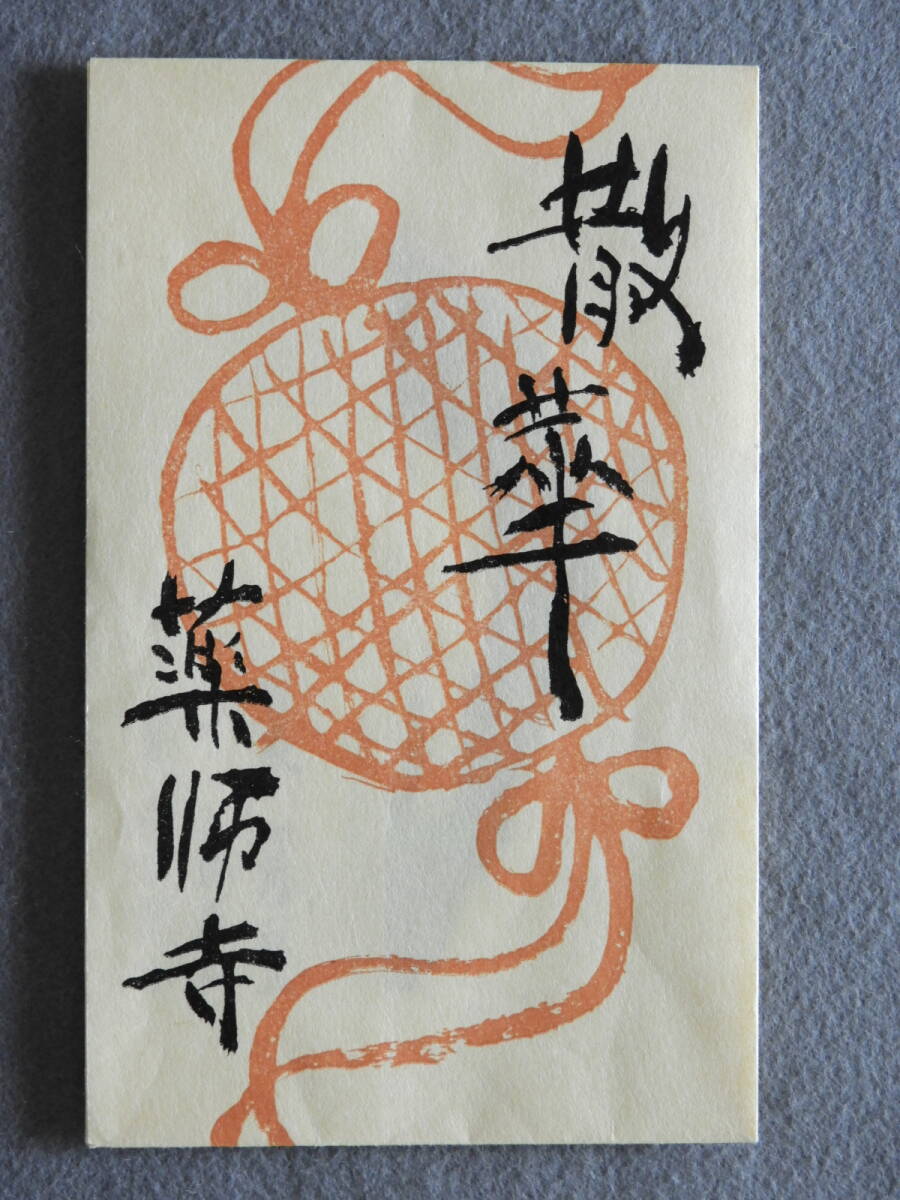 散華
薬師寺